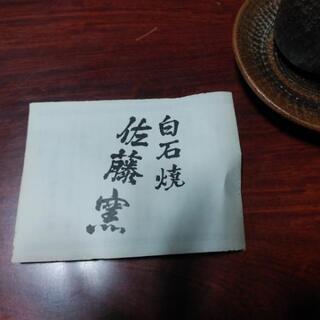 白石燒
佐藤窯